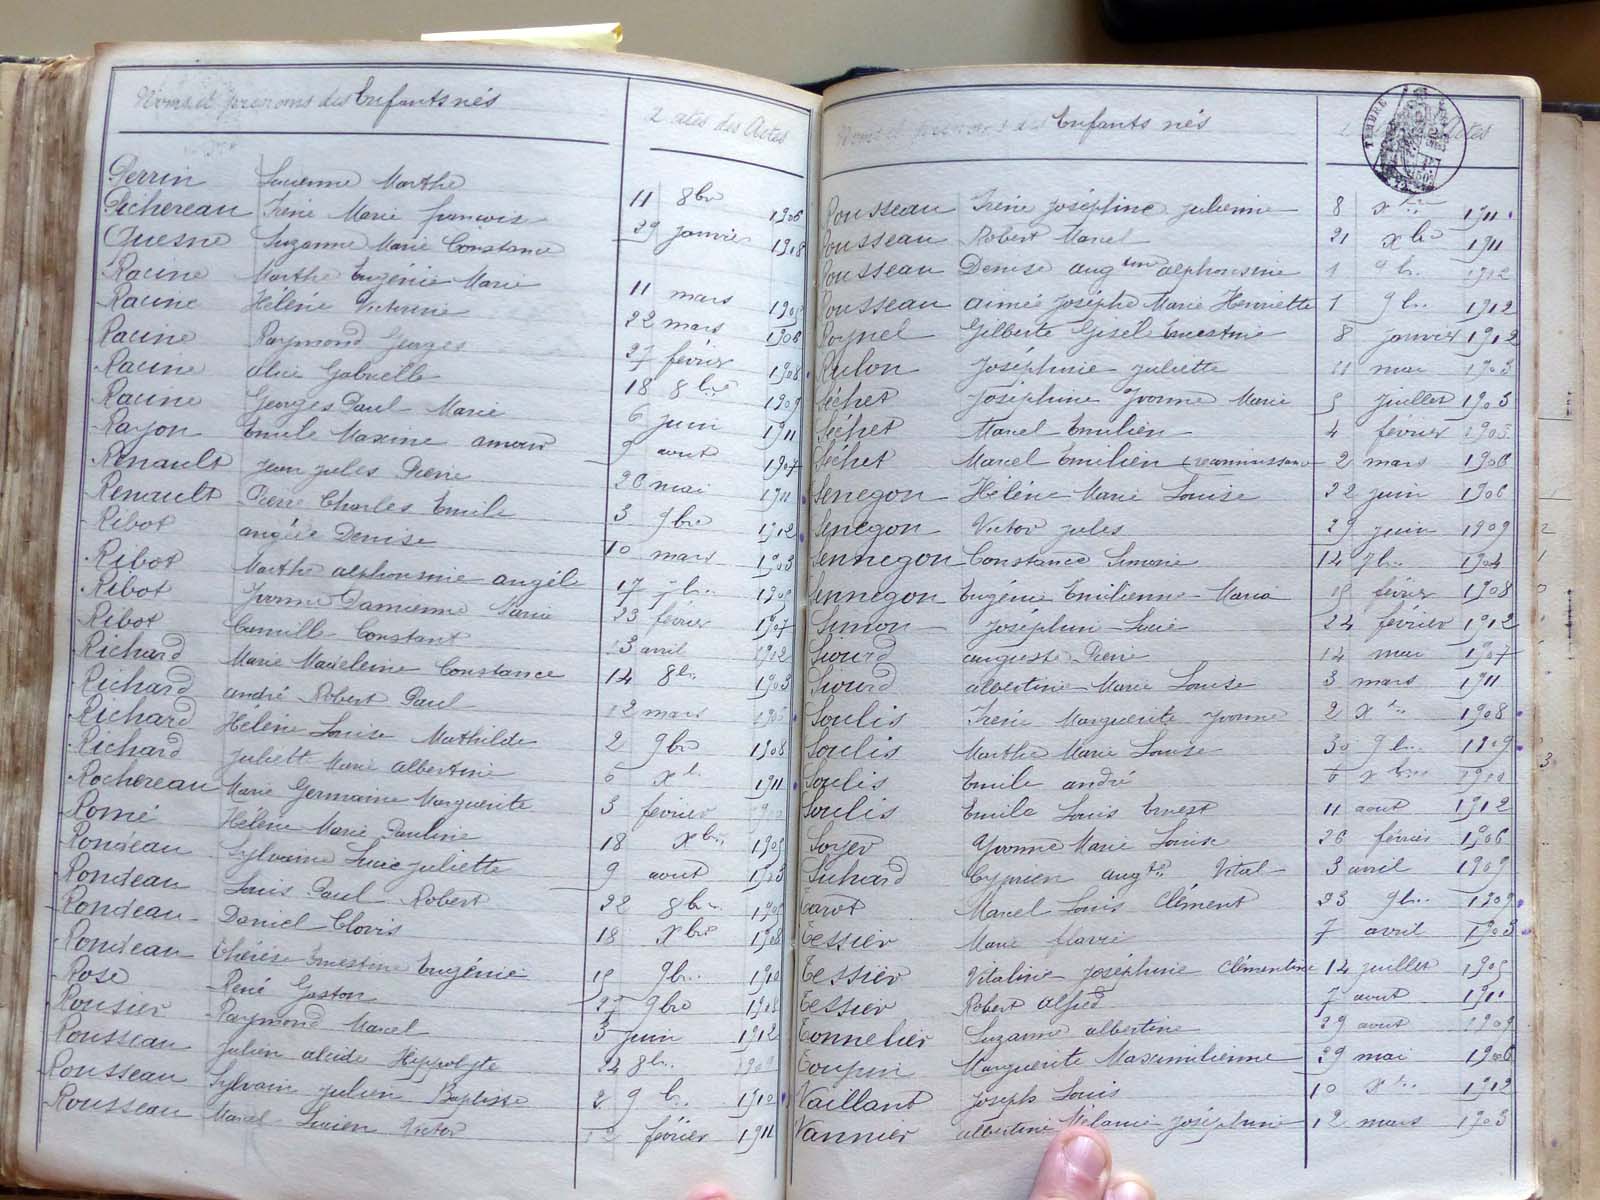 Noms et prénoms des Enfants nés Dates des Actes
Perrin Lucienne Marthe 11 8bre 1906
Pichereau Irène Marie François 29 janvier 1908
Quesne Suzanne Marie Constance
Racine Marthe Eugénie Marie 11 mars 1905
Racine Hélène Victorine 22 mars 1908
Racine Raymond Georges 27 février 1908
Racine Alice Gabrielle 18 8bre 1909
Racine Georges Paul Marie 6 juin 1911
Rayon Emile Maxime amour 9 aout 1907
Renault Jean jules Pierre 20 mai 1911
Renault Pierre Charles Emile 3 9bre 1912
Ribot angèle Denise 10 mars 1903
Ribot Marthe alphonsine angèle 17 7bre 1905
Ribot Yvonne Damienne Marie 23 février 1907
Ribot Camille Constant 13 avril 1912
Richard Marie Madeleine Constance 14 8bre 1903
Richard andré Robert Paul 12 mars 1906
Richard Hélène Louise Mathilde 2 9bre 1908
Richard Juliett Marie albertine 6 xbre 1911
Rochereau Marie Germaine Marguerite 3 février
Romé Hélène Marie Pauline 18 xbre 1905
Rondeau Sylvanne Lucie juliette 9 aout 1903
Rondeau Louis Paul Robert 22 8bre 1905
Rondeau Daniel Clovis 18 xbre 1908
Rondeau Thérèse Ernestine Eugénie 15 9bre 1910
Rose René Gaston 27 9bre 1908
Rousier Raymond Marcel 3 juin 1912
Rousseau Julien alcide Hippolyte 24 8bre 1909
Rousseau Sylvain julien Baptiste 2 9bre 1910
Rousseau Marcel Lucien Victor 12 février 1911
Noms et prénoms des Enfants nés Actes
TIMBRE
Rousseau Irène Joséphine julienne 8 xbre 1911
Rousseau Robert Marcel 21 xbre 1911
Rousseau Denise augtine alphonsine 1 9bre 1912
Rousseau aimée Josèphe Marie Henriette 1 9bre 1912
Roynel Gilberte Gisèl Ernestine 8 janvier 1912
Rulon Joséphine juliette 11 mai 1903
Séchet Joséphine Yvonne Marie 5 juillet 1903
Séchet Marcel Emilien 4 février 1905
Séchet Marcel Emilien (reconnaissance 2 mars 1906
Senegon Hélène Marie Louise 22 juin 1906
Senegon Victor jules 29 juin 1909
Sennegon Constance Simone 14 7bre 1904
Sennegon Eugénie Emilienne Maria 15 février 1908
Simon Joséphine Lucie 24 février 1912
Siourd auguste Pierre 14 mai 1907
Siourd albertine Marie Louise 3 mars 1911
Soulis Irène Marguerite Yvonne 2 xbre 1908
Soulis Marthe Marie Louise 30 9bre 1909
Soulis Emile andré 6 xbre 1910
Soulis Emile Louis Ernest 11 aout 1912
Soyer Yvonne Marie Louise 26 février 1906
Suhard Cyprien augte Vital 3 avril 1909
Tarot Marcel Louis Clément 23 9bre 1909
Tessier Marie flavie 7 avril 1903
Tessier Vitaline Joséphine Clémentine 14 juillet 1905
Tessier Robert alfred 7 aout 1911
Tonnelier Suzanne albertine 29 aout 1909
Toupin Marguerite Maximilienne 29 mai 1906
Vaillant Joseph Louis 10 xbre 1912
Vannier albertine Mélanie Joséphine 12 mars 1903